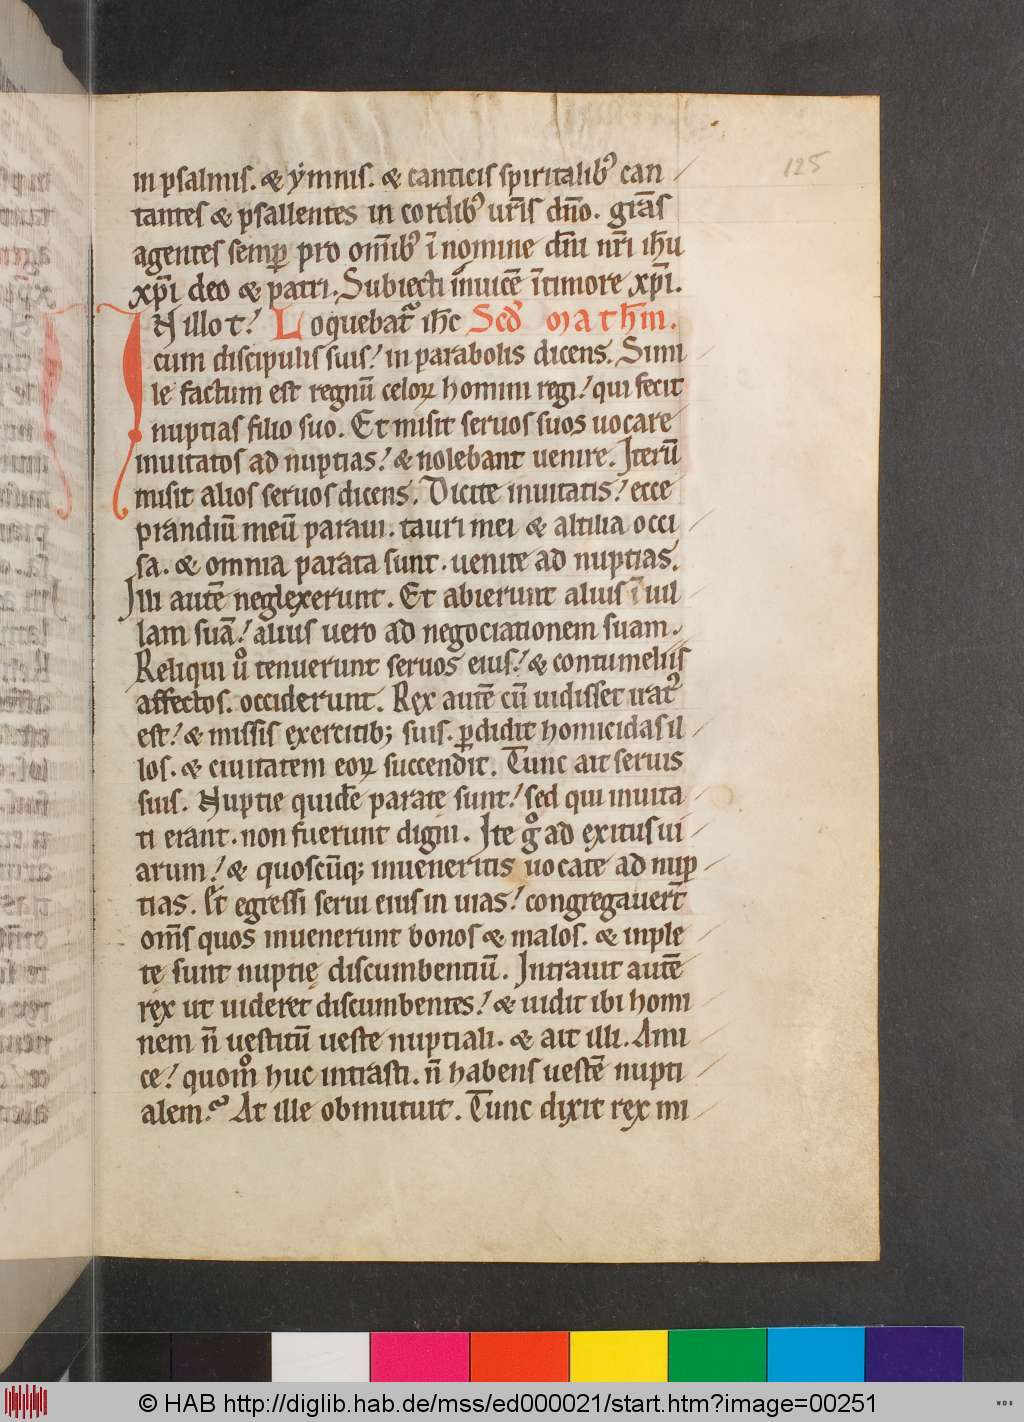 125
in psalmis. & ẏmnis. & canticis spiritalibꝰ can
tantes & psallentes in cordibꝰ ur̄is dn̄o. gr̄as
agentes semꝑ pro om̄ibꝰ ī nomine dn̄i nr̄i ih̄u
xp̄i deo & patri. Subiecti inuicē ītimore xp̄i.
IN illo t! Loquebat᷒ ih̄c Scd̄ Math̄m.
cum discipulis suis! in parabolis dicens. Simi
le factum est regnū celoꝝ homini regi! qui fecit
nuptias filio suo. Et misit seruos suos uocare
inuitatos ad nuptias! & nolebant uenire. Iterū
misit alios seruos dicens. Dicite inuitatis! ecce
prandiū meū paraui. tauri mei & altilia occi
sa. & omnia parata sunt. uenite ad nuptias.
Illi autē neglexerunt. Et abierunt alius ī uil
lam suā! alius uero ad negociationem suam.
Reliqui uͦ tenuerunt seruos eius! & contumeliis
affectos. occiderunt. Rex autē cū uidisset irat᷒
est! & missis exercitib; suis. ꝑdidit homicidas il
los. & ciuitatem eoꝝ succendit. Tunc ait seruis
suis. Nuptie quidē parate sunt! sed qui inuita
ti erant. non fuerunt digni. Ite gͦ ad exitus ui
arum! & quoscūq; inueneritis uocate ad nup
tias. Et egressi serui eius in uias! congregauer̄t
om̄s quos inuenerunt bonos & malos. & inple
te sunt nuptię discumbentiū. Intrauit autē
rex ut uideret discumbentes! & uidit ibi homi
nem n̄ uestitū ueste nuptiali. & ait illi. Ami
ce! quomͦ huc intrasti. n̄ habens uestē nupti
alem? At ille obmutuit. Tunc dixit rex mi
© HAB http://diglib.hab.de/mss/ed000021/start.htm?image=00251